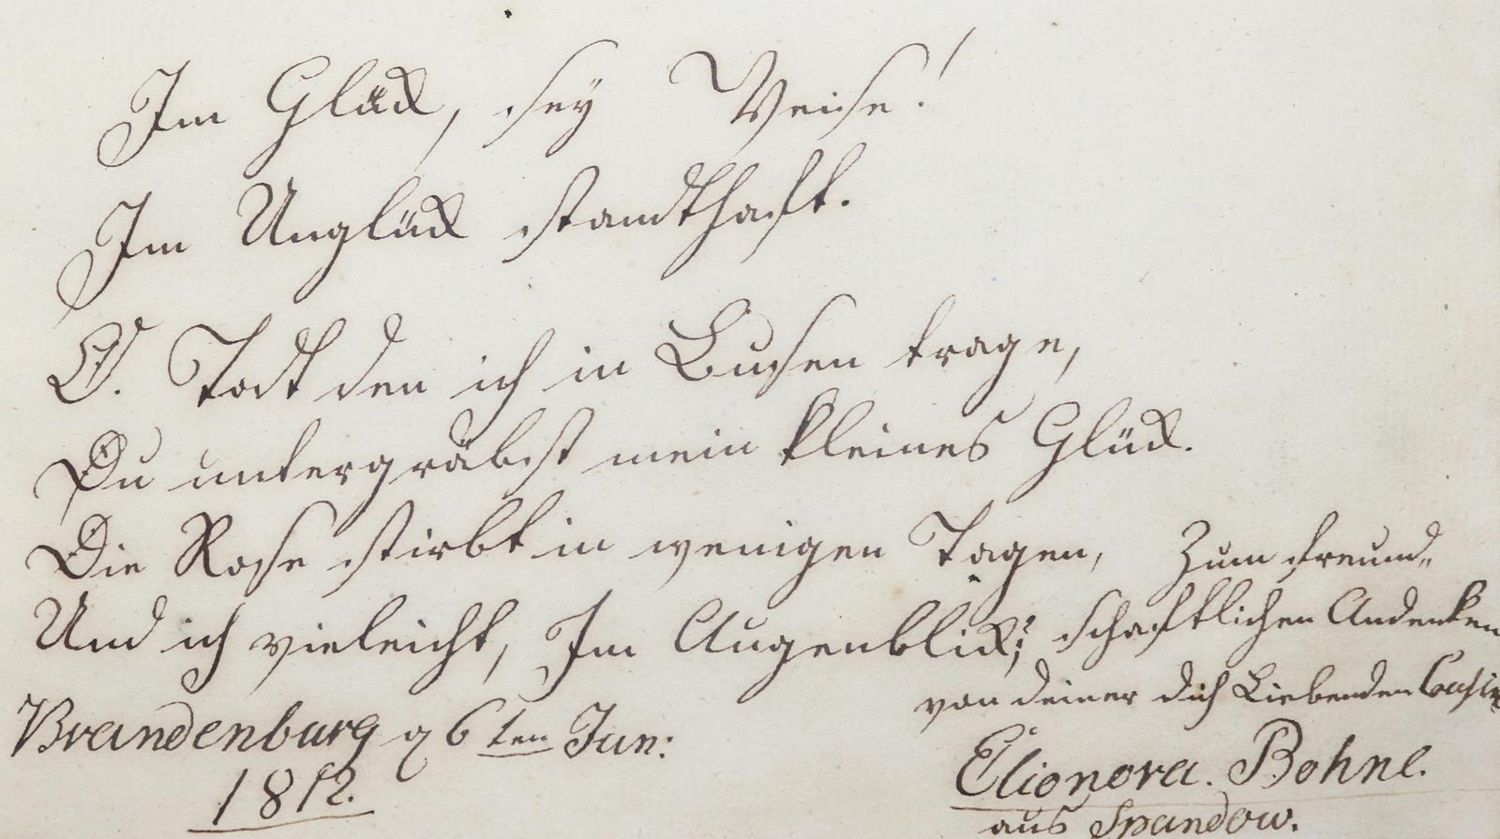 Im Glück, sey Weise!
Im Unglück standthaft.
O. Todt den ich in Busen trage,
Du untergräbst mein kleines Glück.
Die Rose stirbt in wenigen Tagen,
Und ich vieleicht, Im Augenblick;
Zum freund„
schaftlichen Andenken
von deiner dich Liebenden Cousin
Brandenburg 6ten Jun:
1812.
Elionora. Bohne.
aus Spandow.